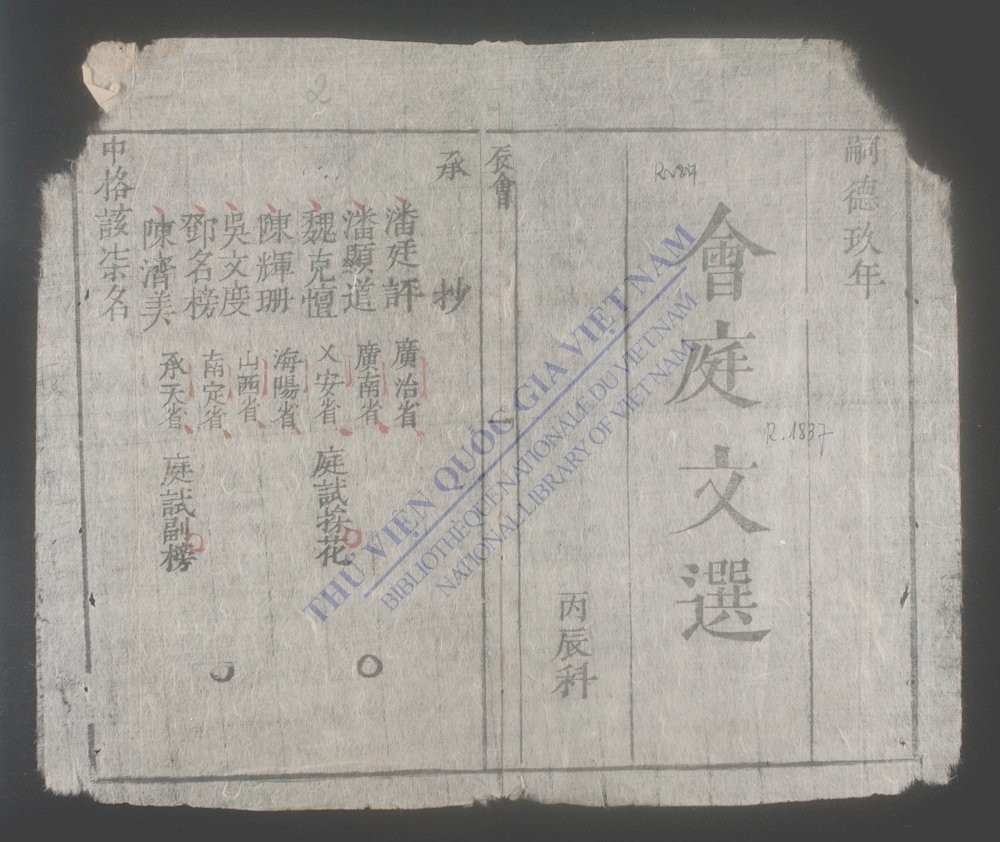 嗣德玖年
會庭文選
丙辰科
辰會
承抄
潘廷評 廣治省
潘顯道 廣南省
魏克憻 乂安省 庭試探花
陳輝珊 海陽省
吳文度 山西省
鄧名榜 南定省
陳濟美 承天省 庭試副榜
中格該柒名
R.1837
R.1837
2
THƯ VIỆN QUỐC GIA VIỆT NAM
BIBLIOTHÈQUE NATIONALE DU VIETNAM
NATIONAL LIBRARY OF VIETNAM